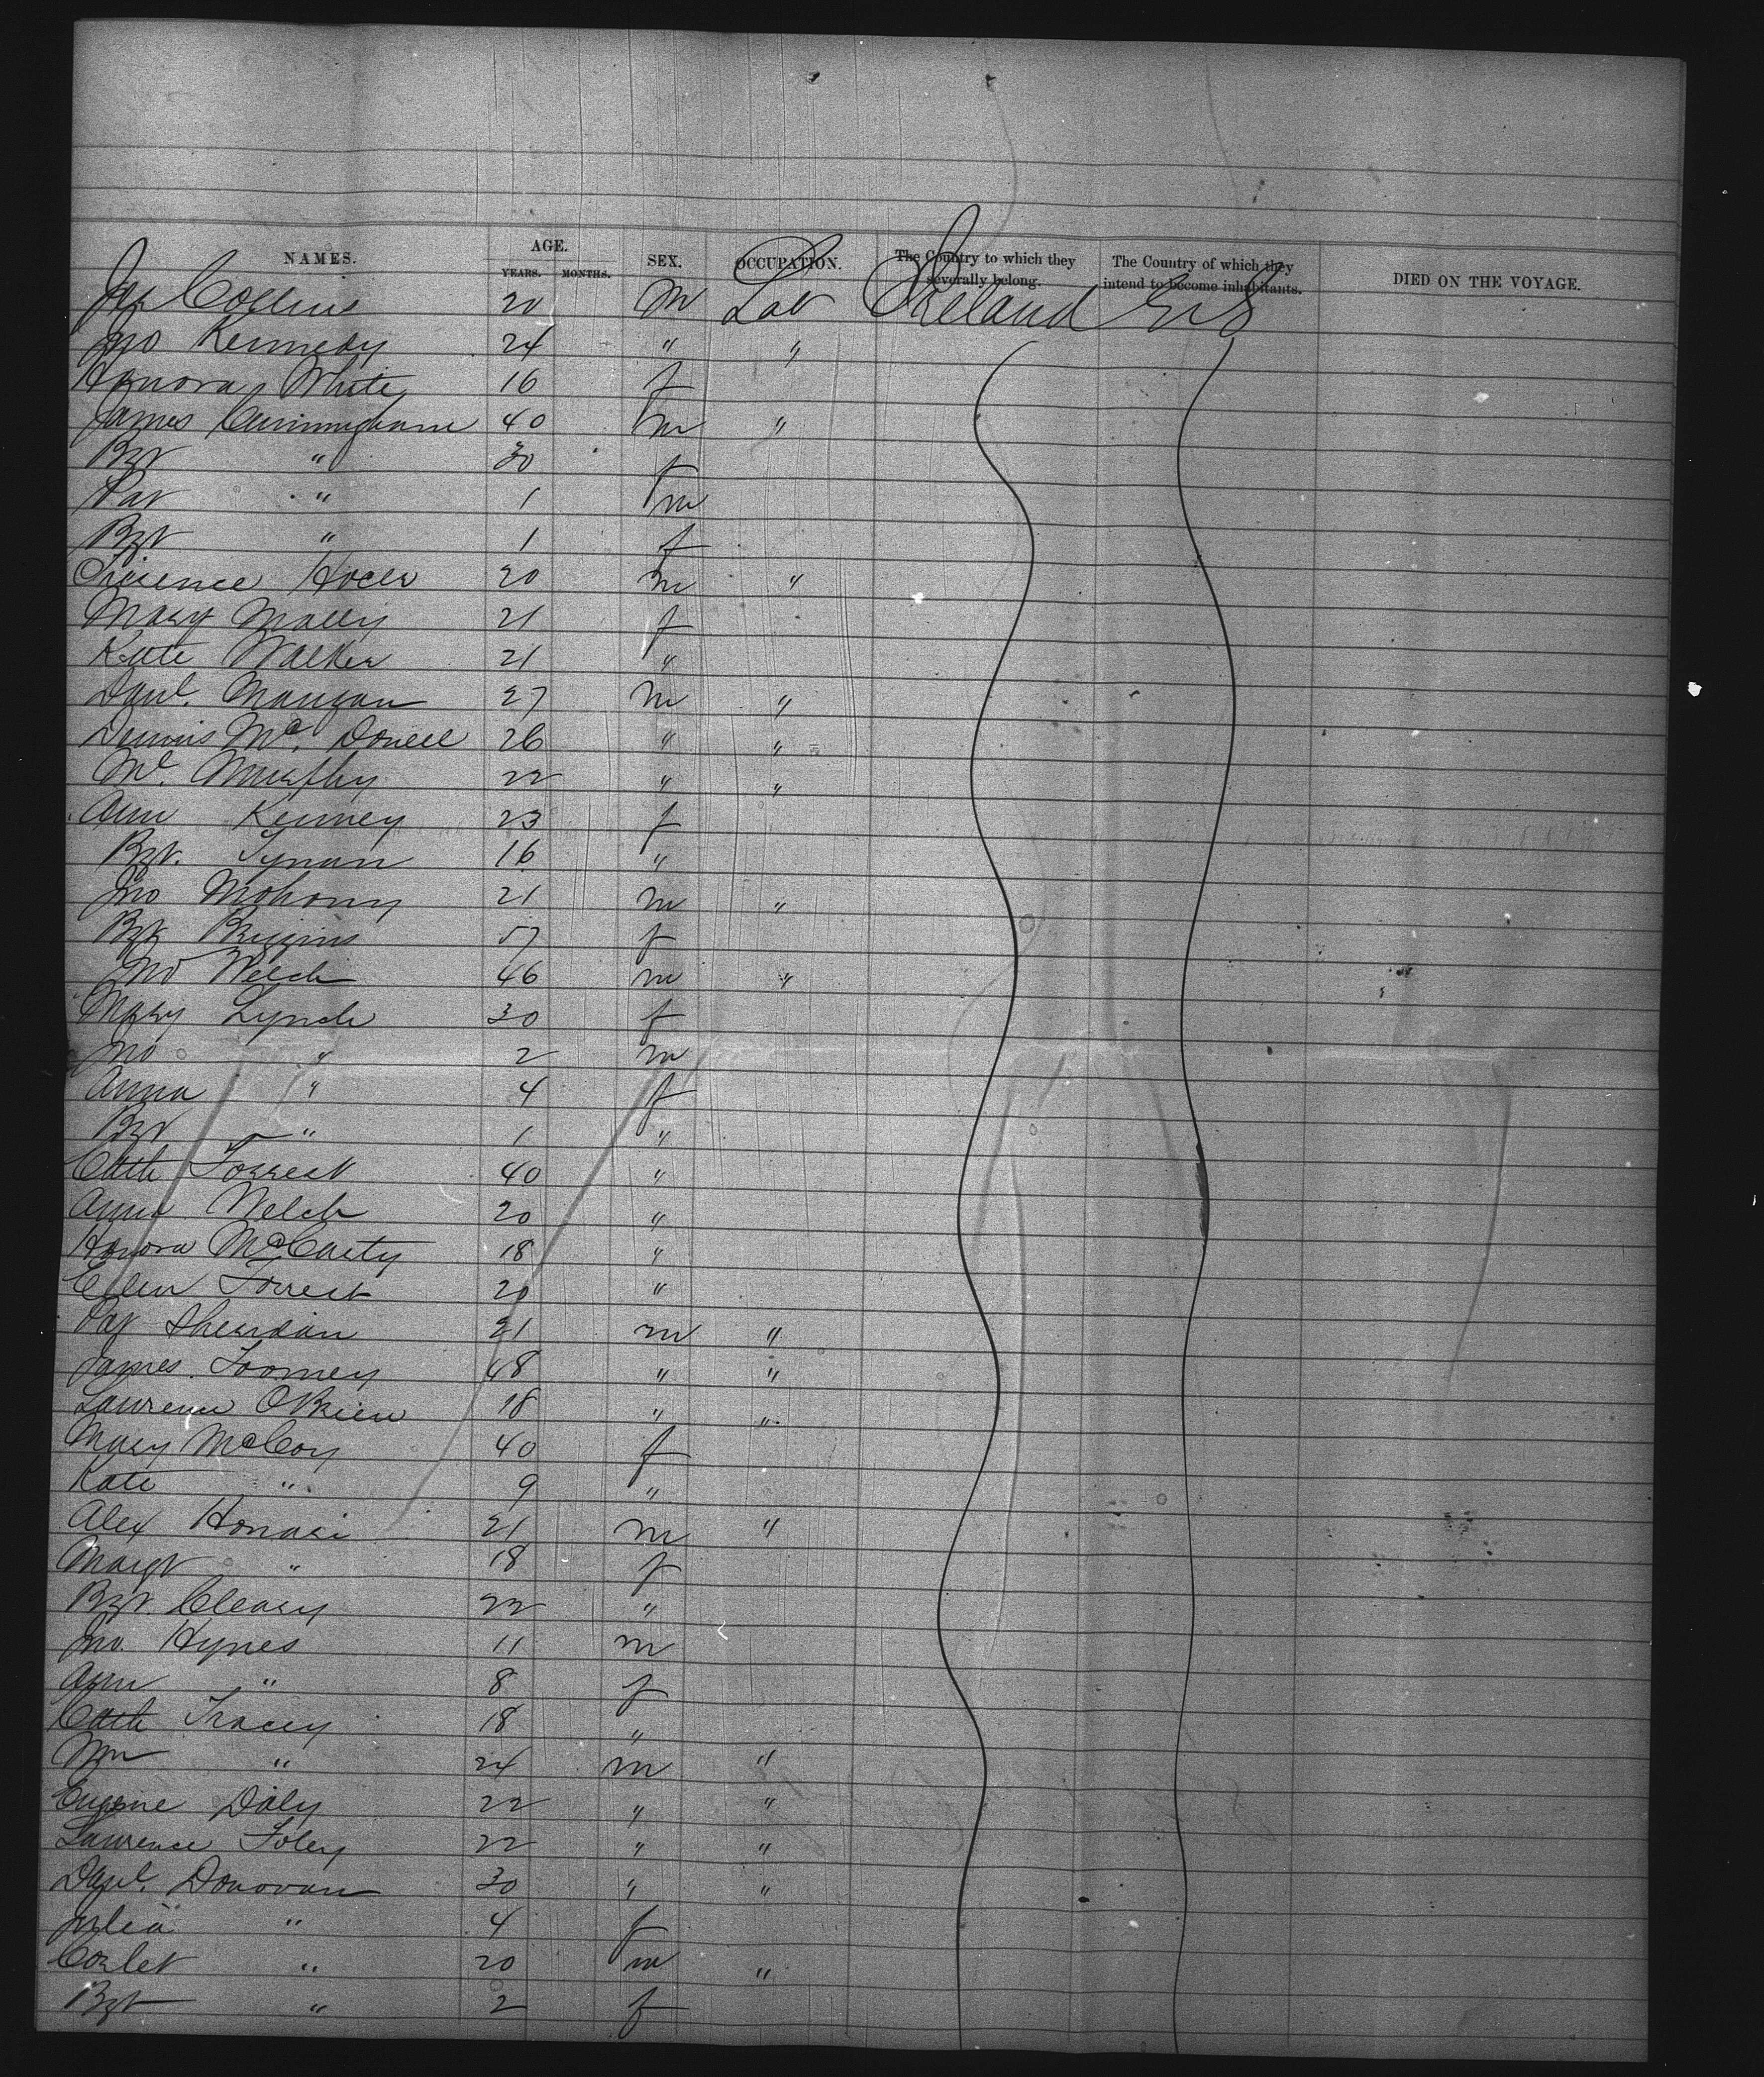 NAMES. AGE. SEX. OCCUPATION. The Country to which they severally belong. The Country of which they intend to become inhabitants. DIED ON THE VOYAGE.
YEARS. MONTHS.
Jas Collins 20 m Lab Ireland U S
Jno Kennedy 24 " "
Honora White 16 f
James Cunningham 40 m "
Bgt " 30 f
Pat " 1 m
Bgt " 1 f
20 m "
Mary Mally 21 f
Kate Walker 21 "
Danl. Mangan 27 m "
Dennis Mc. Donell 26 " "
Ml. Murphy 22 " "
Ann Kenney 23 f
Bgt. Tynan 16 "
Jno Mohony 21 m "
Bgt Biggins 57 f
Jno Welch 46 m "
Mary Lynch 30 f
Jno " 2 m
Anna " 4 f
Bgt " 1 "
Cath Forrest 40 "
Anna Welch 20 "
Honora McCarty 18 "
Ellen Forrest 20 "
Pat Sheridan 21 m "
James Toomey 48 " "
Lawrence OBrien 18 " "
Mary McCoy 40 f
Kate " 9 "
Alex 21 m "
Margt " 18 f
Bgt. Cleary 22 "
Jno. Hynes 11 m
Ann " 8 f
Cath Tracey 18 "
Wm " 24 m "
Eugene Daly 22 " "
Lawrence Foley 22 " "
Danl. Donovan 30 " "
Julia " 4 f
" 20 m "
Bgt " 2 f